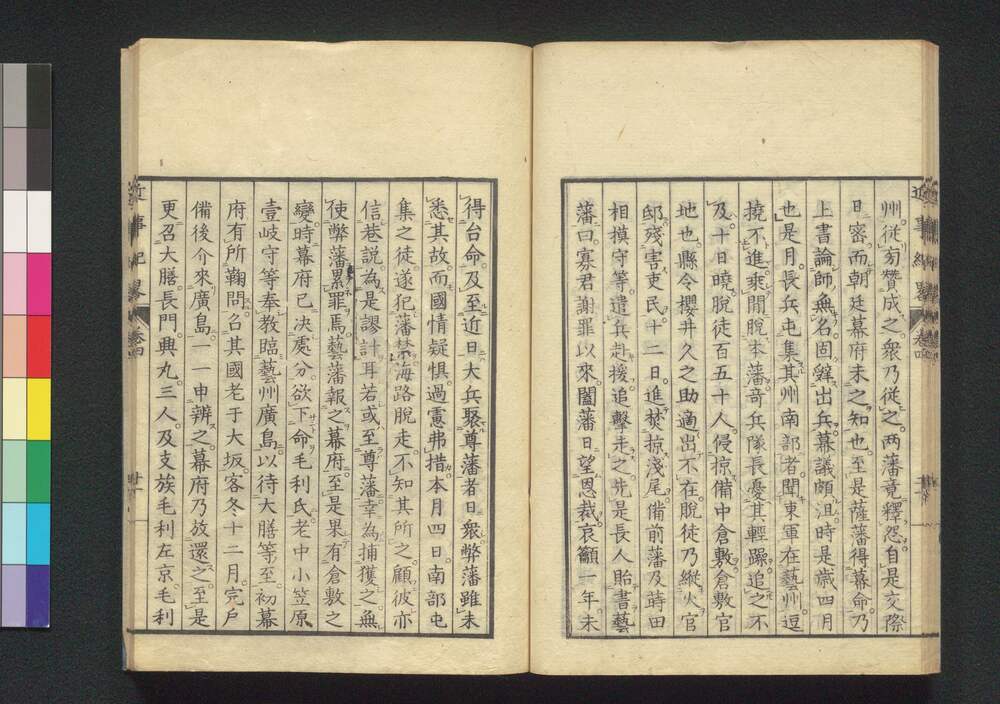 州。從旁贊成之。衆乃從之。两藩竟釋怨。自是交際
日密而朝廷幕府未之知也。至是薩藩得幕命。乃
上書論師無名。固辭出兵。幕議頗沮。時是歲四月
也。是月。長兵屯集其州南部者。聞東軍在藝州。逗
撓不進。乘間脫本藩竒兵隊長憂其輕躁。追之不
及。十日曉。脫徒百五十人。侵掠備中倉敷。倉敷官
地也。縣令櫻井久之助適出不在。脫徒乃縱火官
邸。殘害吏民。十二日。進焚掠淺尾。備前藩及蒔田
相摸守等。遣兵赴援。追擊走之。先是長人貽書藝
藩曰。寡君謝罪以來。闔藩日望恩裁。哀籲一年。未
得台命。及至近日。大兵聚尊藩者日衆。弊藩雖未
悉其故。而國情疑惧。過慮弗措。本月四日。南部屯
集之徒。遂犯藩禁。海路脫走。不知其所之。顧彼亦
信巷說。為是謬計耳。若或至尊藩。幸為捕獲之。無
使弊藩累罪焉。藝藩報之幕府。至是果有倉敷之
變。時幕府已决處分。欲下命毛利氏。老中小笠原
壹岐守等奉教臨藝州廣島。以待大膳等至。初幕
府有所鞠問。召其國老于大坂。客冬十二月。宍戶
備後介來廣島。一一申辨之。幕府乃故還之。至是
更召大膳長門。興丸三人。及支族毛利左京毛利
近事紀畧
卷四
廿一